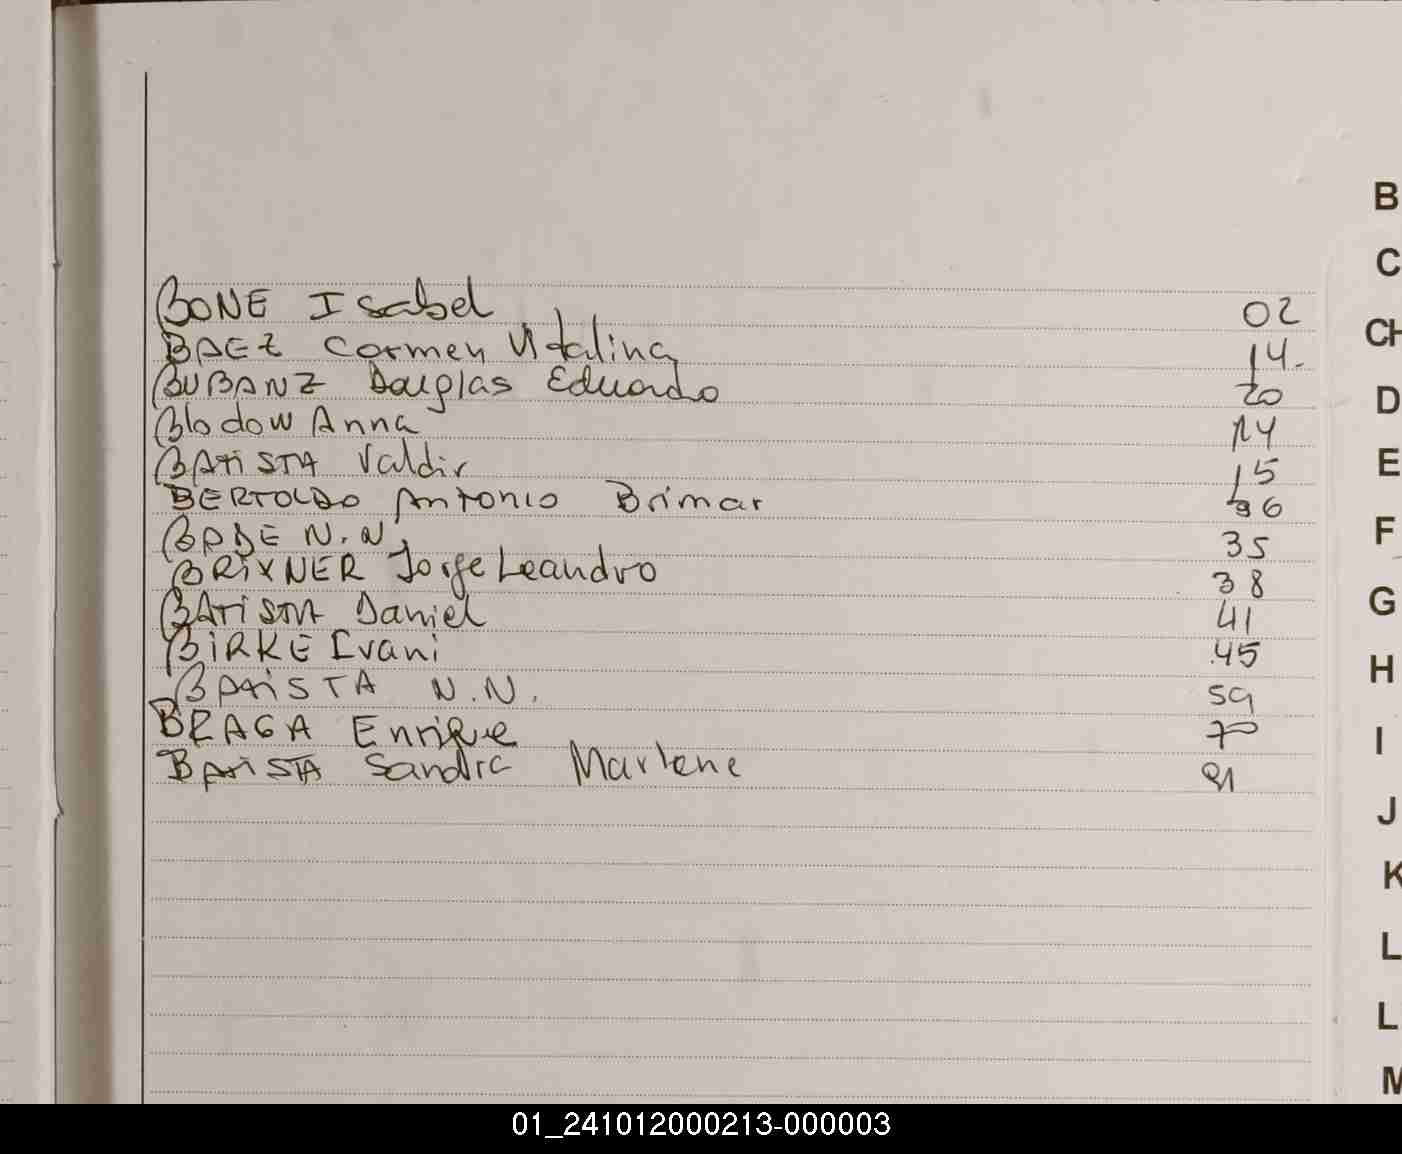 BONE Isabel 02
BAEZ Carmen Vitalina 14.
BUBANZ Douglas Eduardo 20
Blodow Anna 14
BATISTA Valdir 15
BERTOLDO Antonio Brimar 36
BADE N.N. 35
BRIXNER Jorge Leandro 38
BATISTA Daniel 41
BIRKE Ivani 45
BATISTA N.N. 59
BRAGA Enrique 70
BATISTA Sandra Marlene 91
B
C
CH
D
E
F
G
H
I
J
K
L
L
M
01_241012000213-000003